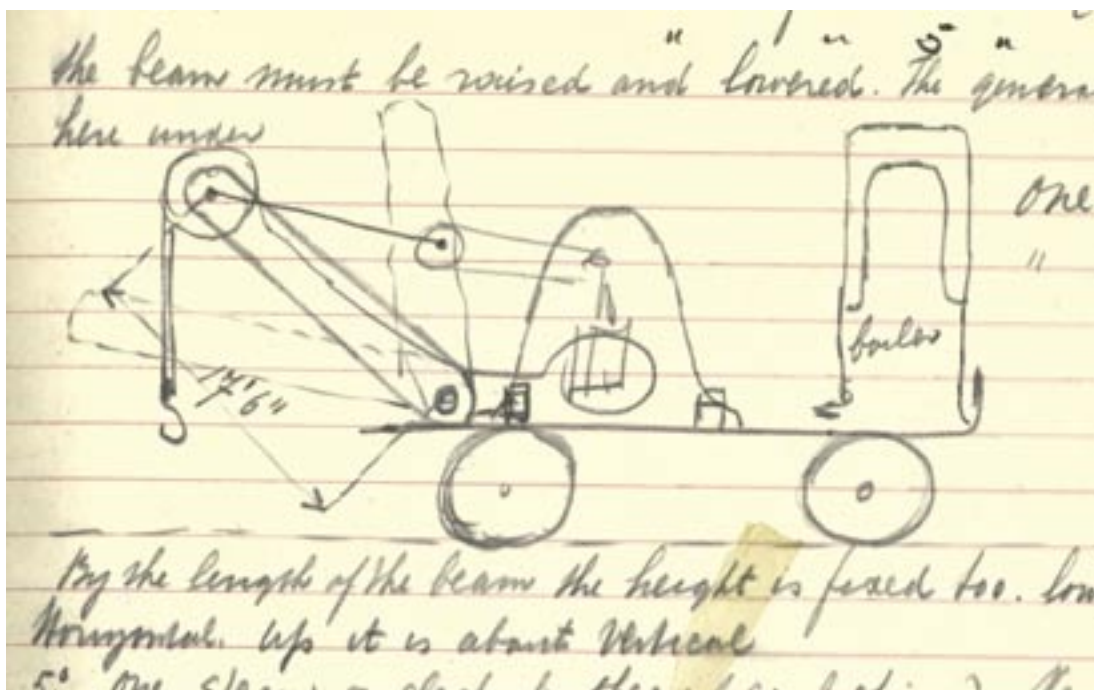 " " 6" "
the beam must be raised and lowered. The genera
here under
One
"
boiler
17' 6"
By the length of the beam the height is fixed too. low
Horizontal. Up it is about Vertical
5° One steam